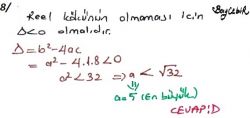 8/ Reel kökünün olmaması için
Δ<0 olmalıdır.
Δ = b² - 4ac
= a² - 4.1.8 < 0
a² < 32 ⇒ a < √32
a = 5 (En büyük)
CEVAP: D